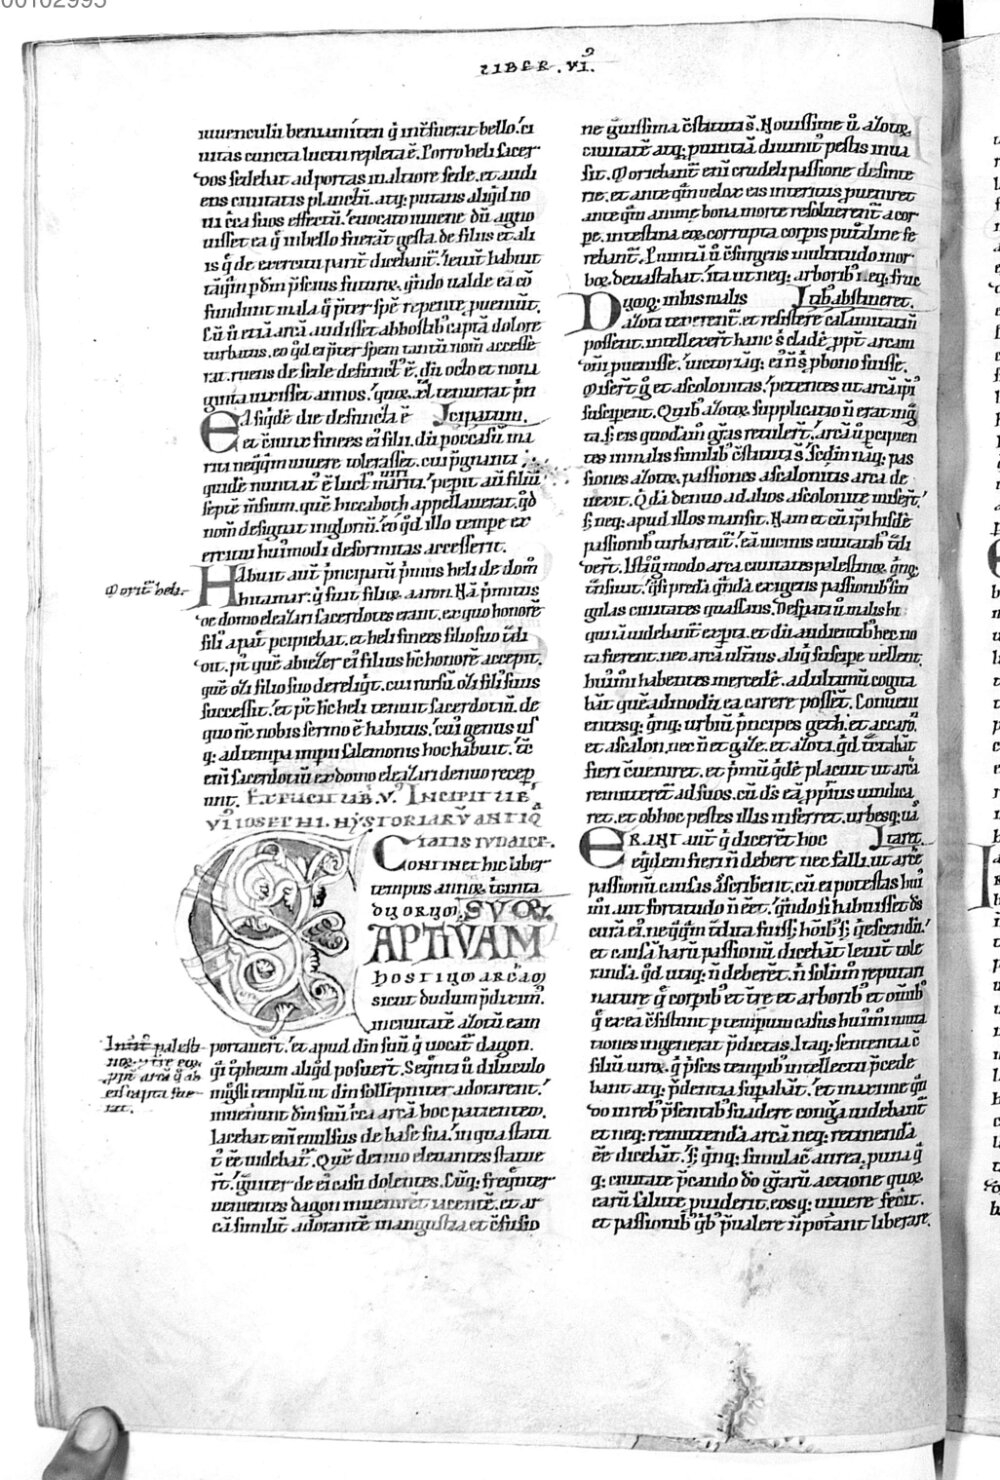 00102995
LIBER .VI.
iuuenculū beniamiten q̄ int̄fuerat bello. ci
uitas cuncta luctu repleta ē. Porro heli sacer
dos sedebat ad portas in altiore sede. et audi
ens ciuitatis planctū. atq; putans aliqd no
ui circa suos effectū. euocato iuuene dū agno
uisset ea q̄ in bello fuerāt gesta. de filiis et ali
is q̄ de exercitu parit̄ dicebant̄. leuit̄ habuit
fundunt mala q̄ p̄ter spē repente p̄ueniūt.
Cū ū etiā arcā audisset ab hostib; captā dolore
turbatus. eo qd ei p̄ter spem tantū nom̄ accesse
rat. ruens de sede defunct' ē. dū octo et nona
ginta uixisset annos. quoꝝ .xl. tenuerat p̄n
Ea siq̄dē die defuncta ē cipatum.
et c̄iunx finees ei' filii. dū p̄ occasū ma
riti neq̄q̄m uiuere tolerasset. cui p̄gnanti
quidē nuntiat' ē luct' mariti. pepit aū filiū
septē m̄sium. quē hiccaboth appellauerat. qd
nom̄ designat inglorium. eo qd illo tempe ex
ercitui hui'modi deformitas accesserit.
Morit̄ heli.
Habuit aut̄ p̄ncipatū p̄mus heli de dom̄
hitamar. q̄ fuit filius aaron. Nā p̄mitus
de domo eleazari sacerdotes erant. ex quo honorē
fili' a pat̄ pcipiebat. et heli finees filio suo t̄di
dit. p' quē abiezer ei' filius h̄c honorē accepit.
quē ozi filio suo dereliq̄t. cui rursū ozi fili' suus
successit. et p' h̄c heli tenuit sacerdotiū. de
quo nc̄ nobis sermo ē habitus. cui' genus us
q; ad tempa imperii salemonis hoc habuit. tc̄
eni sacerdotiū ex domo eleazari denuo recep
unt. EXPLICIT LIB. V. INCIPIT LIB
VI IOSEPHI. HYSTORIARV̄ ANTIQ
CITATIS IVDAICE.
CONTINET hic liber
tempus annoꝝ t̄ginta
duorum. SVOꝜ.
CAPTIVAM
HOSTIUM ARCAM
sicut dudum p̄dixim'.
in ciuitatē azotū eam
Int̄
portauer̄t. et apud dm̄ suū q̄ uocat̄ dagon.
q̄i t̄pheum aliqd posuer̄t. Seq̄nti ū diluculo
ingressi templū ut dm̄ sollepniter adorarent.
inueniunt dm̄ suū circa arcā hoc patientem.
Iacebat eni euulsus de base sua. in qua statu
t' ee uidebat̄. Quē denuo eleuantes statue
r̄t. ḡuiter de ei' casu dolentes. Cūq; freq̄nter
uenientes dagon inuenirēt iacentē. et ar
cā similit̄ adorantē. in angustia et c̄fusio
ne grauissima c̄stituti s̄. Nouissime ū azotoꝝ
ciuitatē atq; puintiā diuinit' pestis inua
sit. Moriebant̄ eni crudeli passione desinte
rie. et anteq̄m uelox eis interitus pueniret
anteq̄m anime bona morte resoluerent̄ a cor
pe. intestina eoꝝ corrupta corpis putdine fe
rebant̄. Puintiā ū c̄surgens multitudo mor
boꝝ deuastabat. ita ut neq; arborib; neq; fruc
Dumq; in his malis tib; abstineret.
azoti tenerent̄. et resistere calamitatib;
possent. intellexert̄ hanc s̄ cladē ppt̄ arcam
dm̄i puenisse. uictoriāq; ei' n̄ s̄ p bono fuisse.
Miser̄t g̊ et ascolonitas. petentes ut arcā ip̄i
susciperent. Quib; azotoꝝ supplicatio n̄ erat ing̃
ta. s; eis quodā m̊ gr̄as retuler̄t. arcā ū pcipien
tes in malis similib; c̄stituti s̄. sedm̄ nāq; pas
siones azotoꝝ. passiones ascalonitis arca de
uexit. Qdā denuo ad alios ascolonite miser̄t.
s; neq; apud illos mansit. Nam et cū ip̄i hisdē
passionib; turbarent̄. eā uicinis ciuitatib; t̄di
der̄t. Istaq̄ modo arca ciuitates palestinoꝝ q̄nq;
gulas ciuitates quassans. Desperati ū malis hi
qui tā uidebant̄ experta. et dū audientib; hec no
ta fierent. nec arcā ulterius aliq̄ suscipe uellent.
hui'm̊i habentes mercedē. ad ultimū cogita
bāt quēadmodū ea carere possent̄. Conueni
entesq; q̄nq; urbiū p̄ncipes geth. et accarō.
et ascalon. nec n̄ et gaze. et azoti. qd t̄ctabāt
fieri c̄ueniret. et p̄mū q̄dē placuit ut arcā
remitteret̄ ad suos. cū ds̄ eā p̄prius uindica
ret. et ob hoc pestes illis inferret. urbesq; uā
ERANT aut̄ q̄ diceret hoc staret.
eq̄dem fieri n̄ debere nec falli. ut arcē
passionū causas ascriberent. cū ei potestas hui'
m̊i. aut fortitudo n̄ eet̄. q̄ndo si habuisset ds̄
curā ei'. neq̄q̄m t̄dita fuiss; hoīb; s; q̄escendū.
et causā harū passionū. dicebāt leuit̄ tole
randā. qd utiq; n̄ deberet̄. n̄ solūm̊ reputari
nature q̄ corpib; et tr̄e et arborib; et om̄ib;
q̄ ex ea c̄sistunt p tempum casus hui'm̊i muta
tiones ingenerat p̄dictas. Itaq; sententiā c̄
siliū uiroꝝ. q̄ p̄scis temporib; intellectu p̄cede
bant atq; p̄dentia supabāt. et maxime q̄n
do in reb; p̄sentib; suadere congr̄a uidebant̄
et neq; remittendā arcā neq; retinendā
ee dicebāt. s; q̄nq; simulac̄ aurea. p una q̄
q; ciuitate p̄cando do̅ gr̄arū actione quoꝝ
earū salute puiderit. eosq; uiuere fecit.
et passionib; q̄b; p̄ualere n̄ poterant liberare.